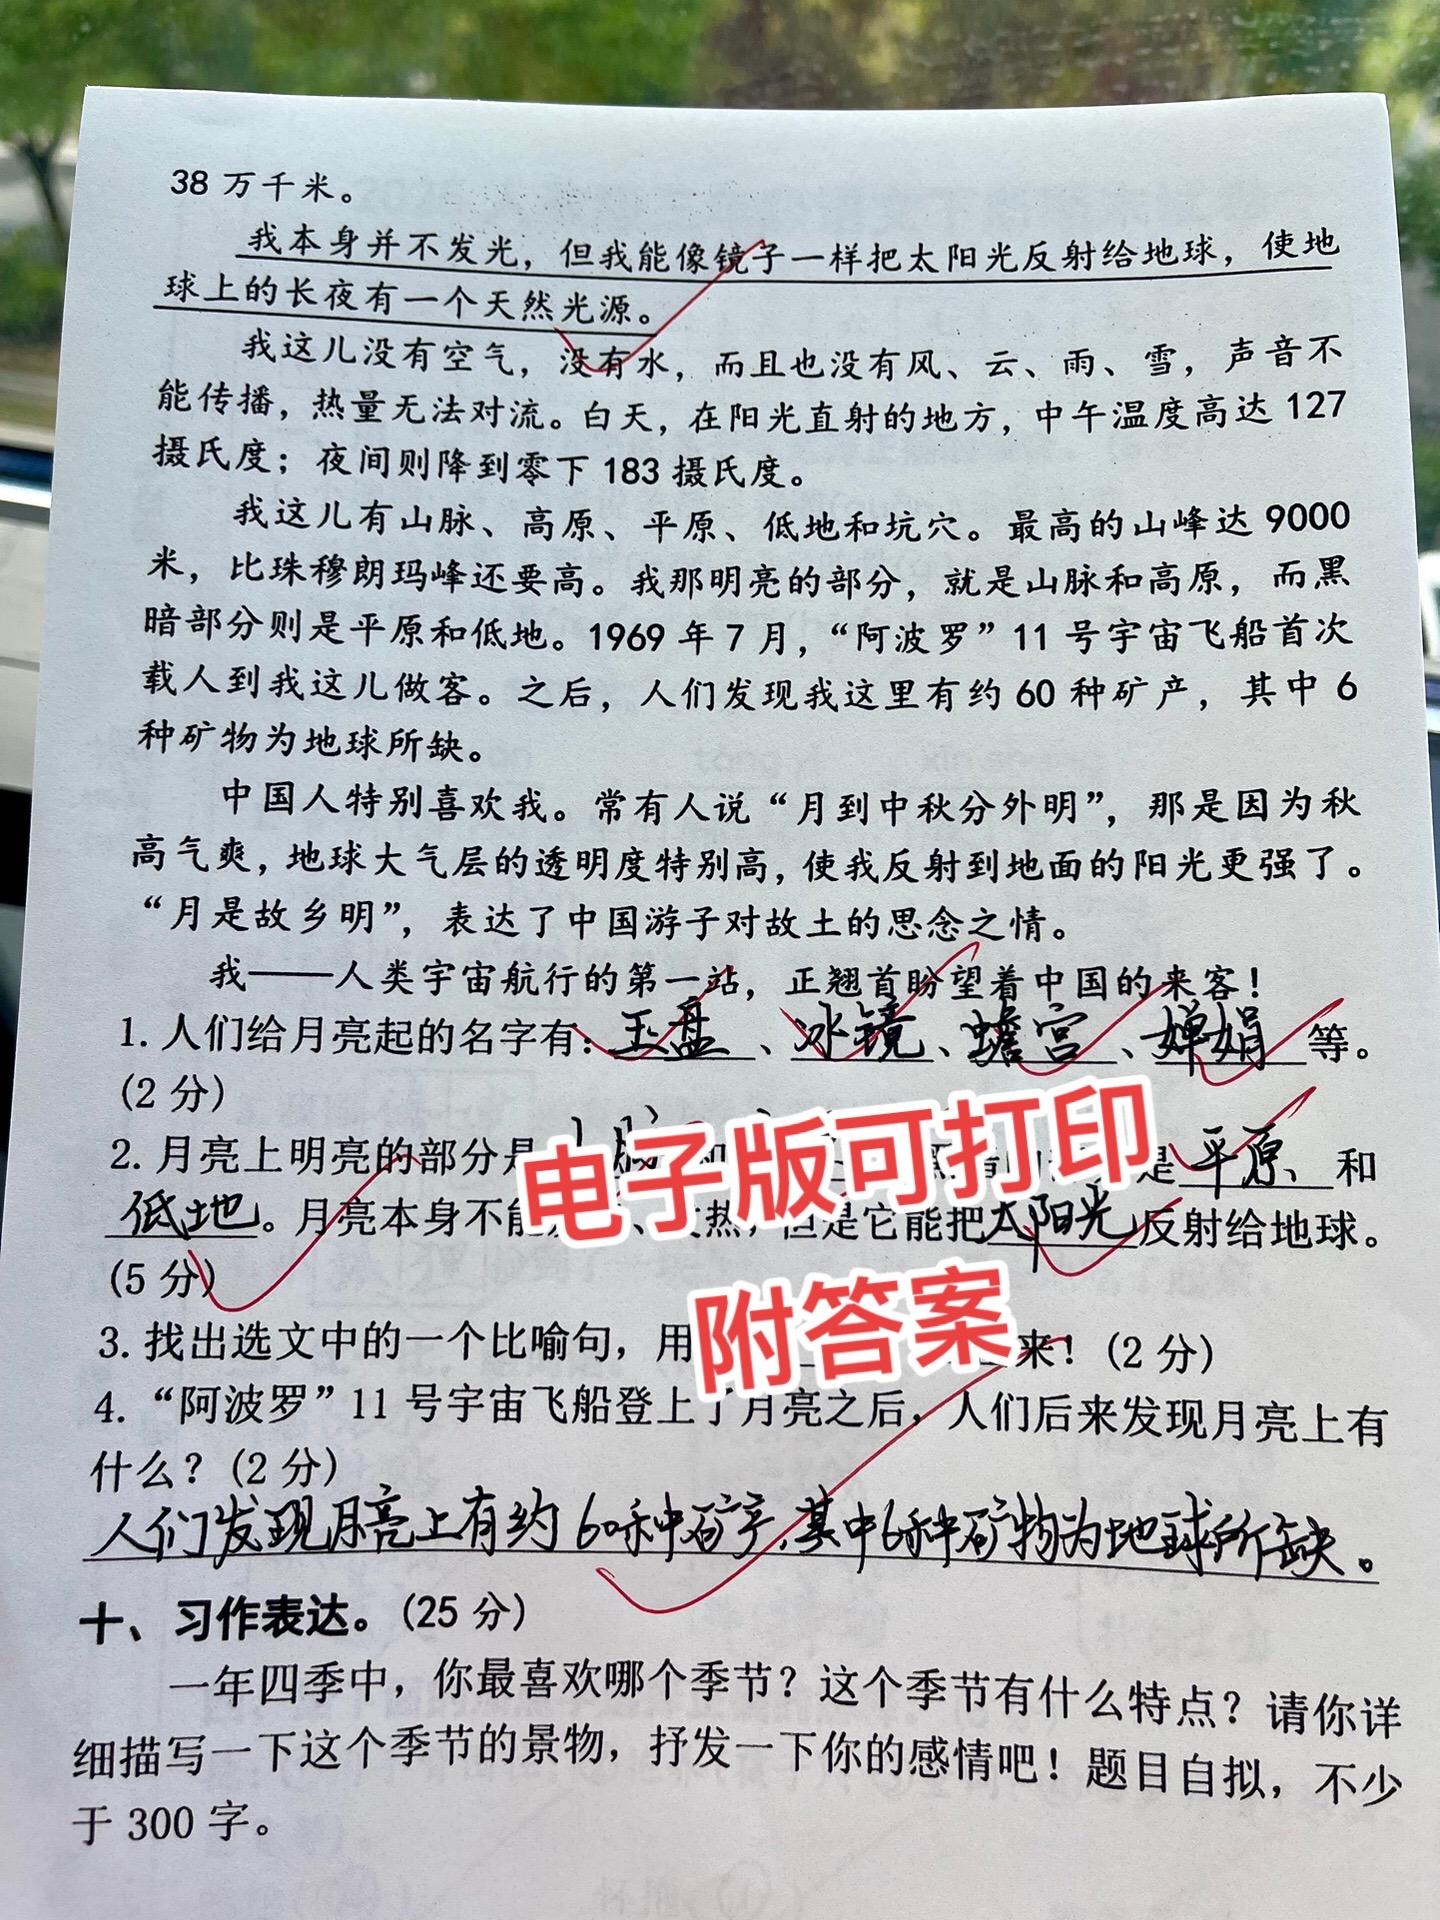 38 万千米。
我本身并不发光，但我能像镜子一样把太阳光反射给地球，使地
球上的长夜有一个天然光源。
我这儿没有空气，没有水，而且也没有风、云、雨、雪，声音不
能传播，热量无法对流。白天，在阳光直射的地方，中午温度高达 127
摄氏度；夜间则降到零下 183 摄氏度。
我这儿有山脉、高原、平原、低地和坑穴。最高的山峰达 9000
米，比珠穆朗玛峰还要高。我那明亮的部分，就是山脉和高原，而黑
暗部分则是平原和低地。1969 年 7 月，“阿波罗”11 号宇宙飞船首次
载人到我这儿做客。之后，人们发现我这里有约 60 种矿产，其中 6
种矿物为地球所缺。
中国人特别喜欢我。常有人说“月到中秋分外明”，那是因为秋
高气爽，地球大气层的透明度特别高，使我反射到地面的阳光更强了。
“月是故乡明”，表达了中国游子对故土的思念之情。
我——人类宇宙航行的第一站，正翘首盼望着中国的来客！
1. 人们给月亮起的名字有：玉盘、冰镜、蟾宫、婵娟等。
(2 分)
2. 月亮上明亮的部分是 是平原和
低地。月亮本身不能 、 热，但是它能把太阳光反射给地球。
(5 分)
电子版可打印
附答案
3. 找出选文中的一个比喻句，用 来！(2 分)
4. “阿波罗”11 号宇宙飞船登上了月亮之后，人们后来发现月亮上有
什么？(2 分)
人们发现月亮上有约60种矿产，其中6种矿物为地球所缺。
十、习作表达。(25 分)
一年四季中，你最喜欢哪个季节？这个季节有什么特点？请你详
细描写一下这个季节的景物，抒发一下你的感情吧！题目自拟，不少
于 300 字。